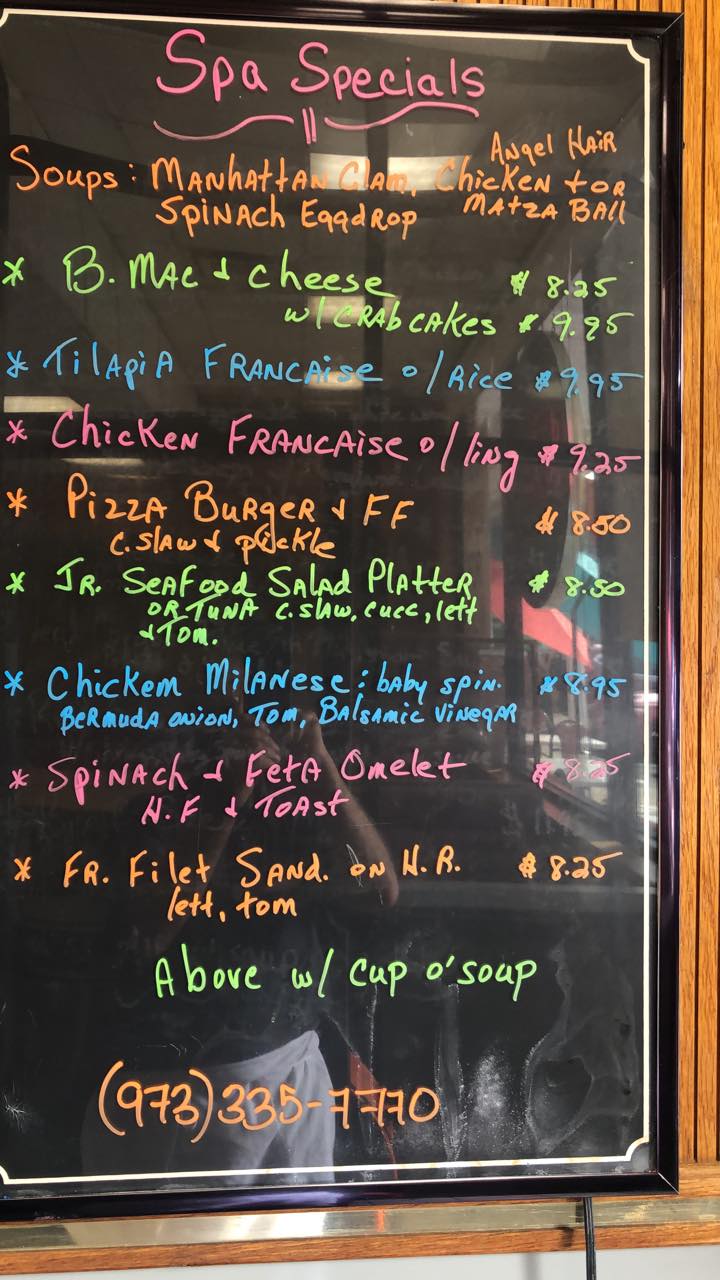 Spa Specials
Angel Hair
Soups: Manhattan Clam, Chicken + or
Spinach Eggdrop Matza Ball
* B. Mac & cheese $ 8.25
w/ crab cakes $ 9.95
* Tilapia Francaise o/Rice $ 9.95
* Chicken Francaise o/ling $ 9.25
* Pizza Burger & FF $ 8.50
c. slaw & pickle
* Jr. Seafood Salad Platter $ 8.50
or Tuna c. slaw, cucc, lett
& Tom.
* Chickem Milanese: baby spin. $ 8.95
Bermuda onion, Tom, Balsamic vinegar
* Spinach & Feta Omelet $ 8.25
H.F & Toast
* Fr. Filet Sand. on H.R. $ 8.25
lett, tom
Above w/ cup o'soup
(973)335-7770